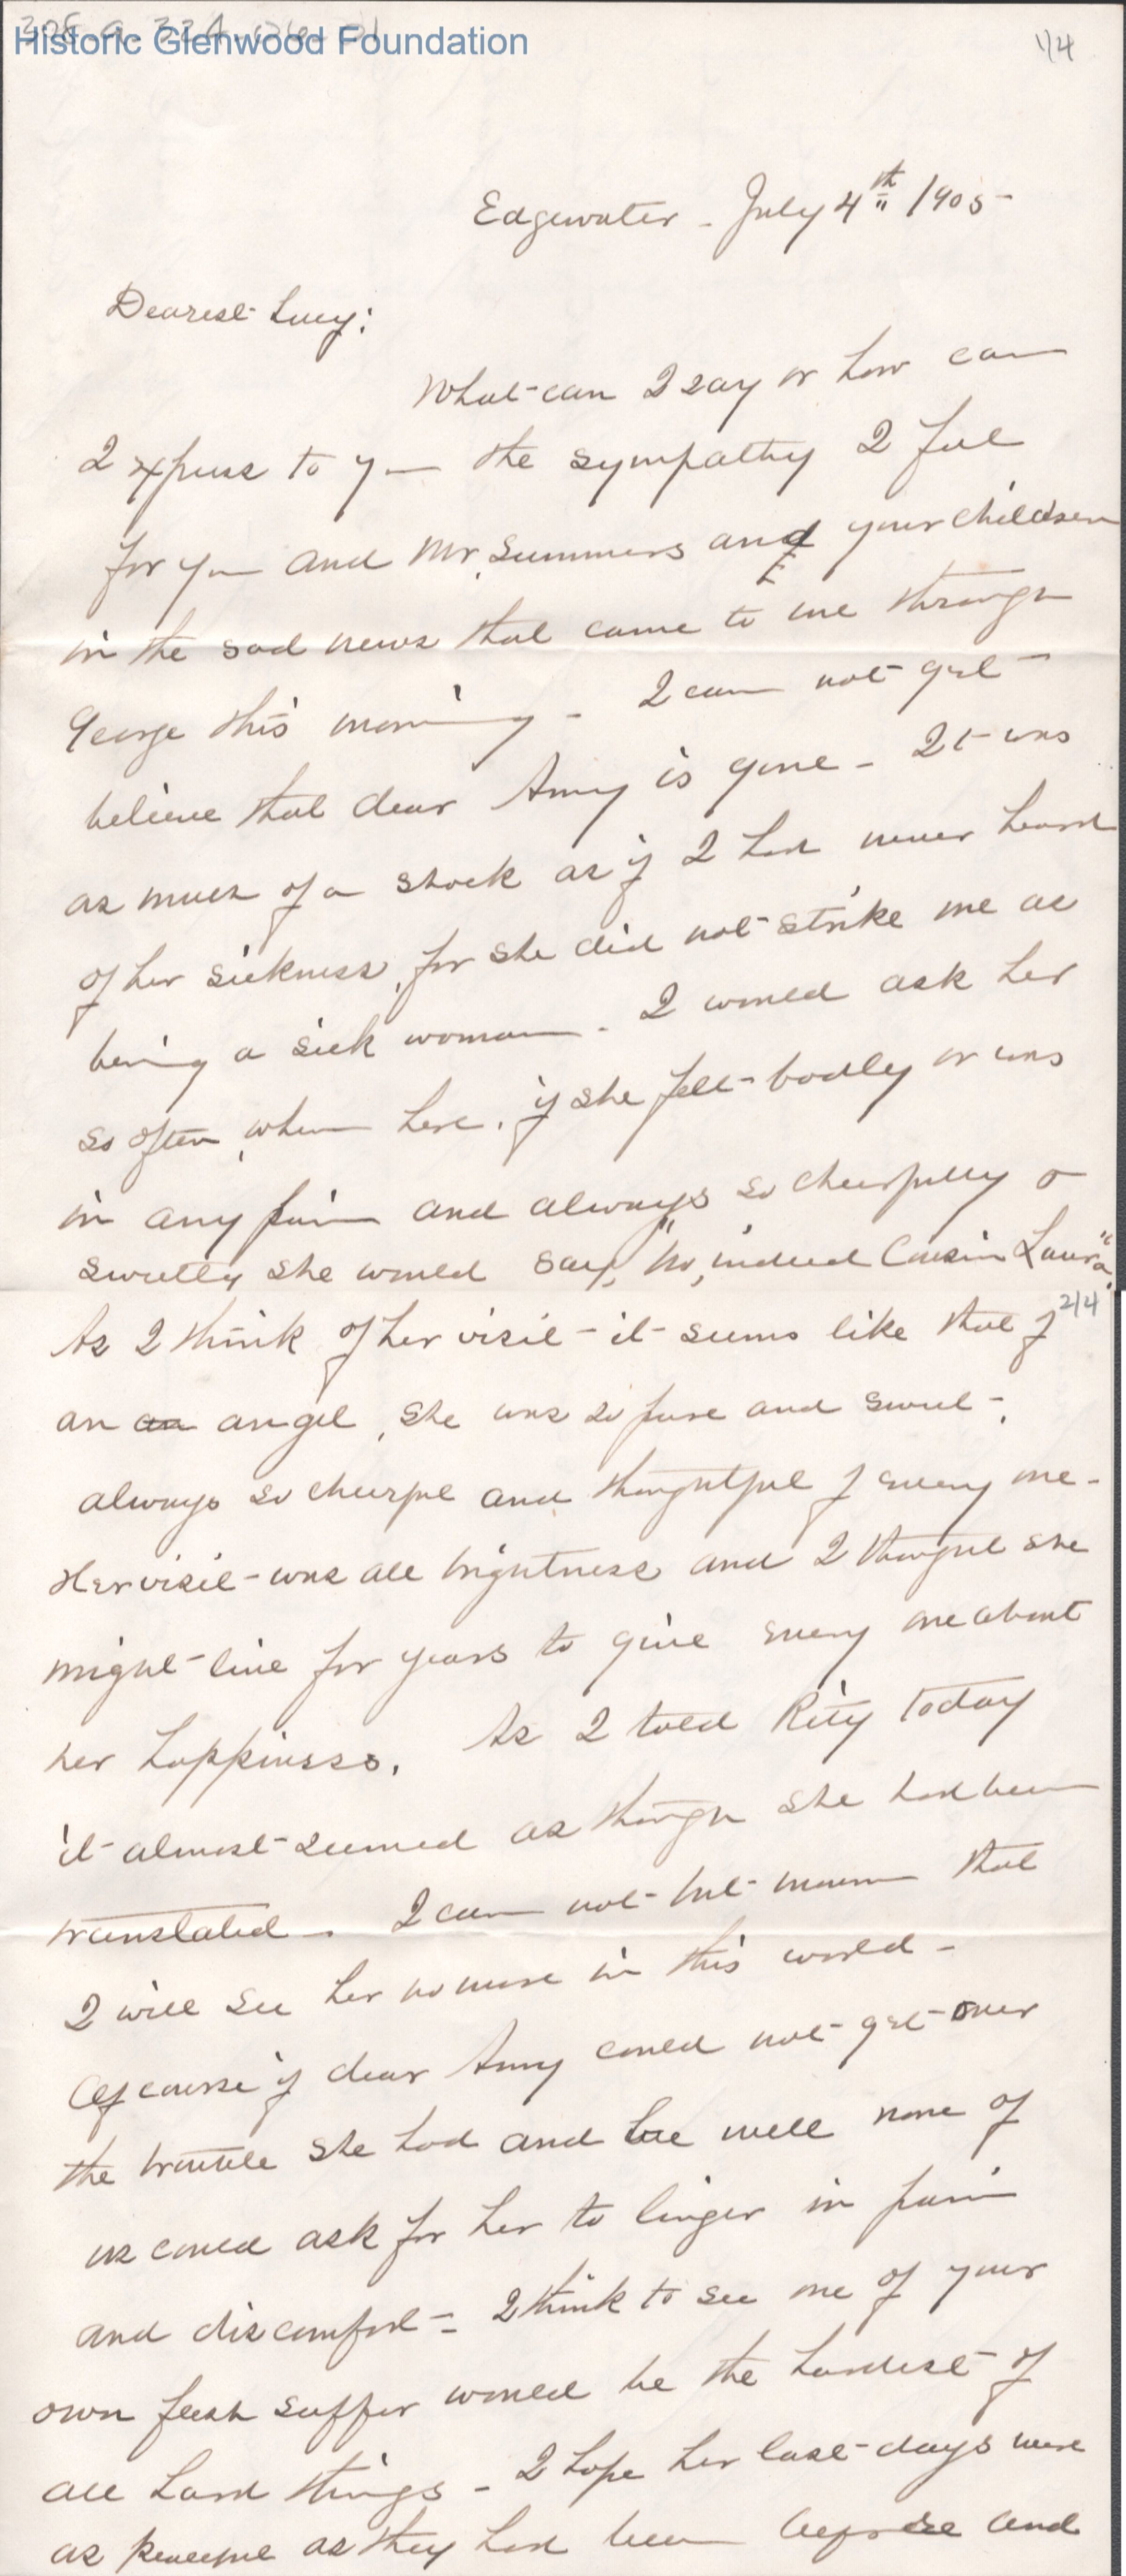 Historic Glenwood Foundation
1/4
Edgewater - July 4th 1905-
Dearest Lucy:
What can I say or how can
I express to you the sympathy I feel
for you and Mr. Summers and your children
in the sad news that came to me through
George this morning - I can not yet
believe that dear Amy is gone - It was
as much of a shock as if I had never heard
of her sickness, for she did not strike me as
being a sick woman. I would ask her
so often, when here, if she felt badly or was
in any pain and always so cheerfully &
sweetly she would say, "No, indeed Cousin Laura".
2/4
As I think of her visit it seems like that of
an an angel, she was so pure and sweet,
always so cheerful and thoughtful of every one -
Her visit was all brightness and I thought she
might live for years to give every one about
her happiness. As I told Rity today
it almost seemed as though she had been
translated - I can not but mourn that
I will see her no more in this world -
Of course if dear Amy could not get over
the trouble she had and be well none of
us could ask for her to linger in pain
and discomfort - I think to see one of your
own flesh suffer would be the hardest of
all hard things - I hope her last days were
as peaceful as they had been before and